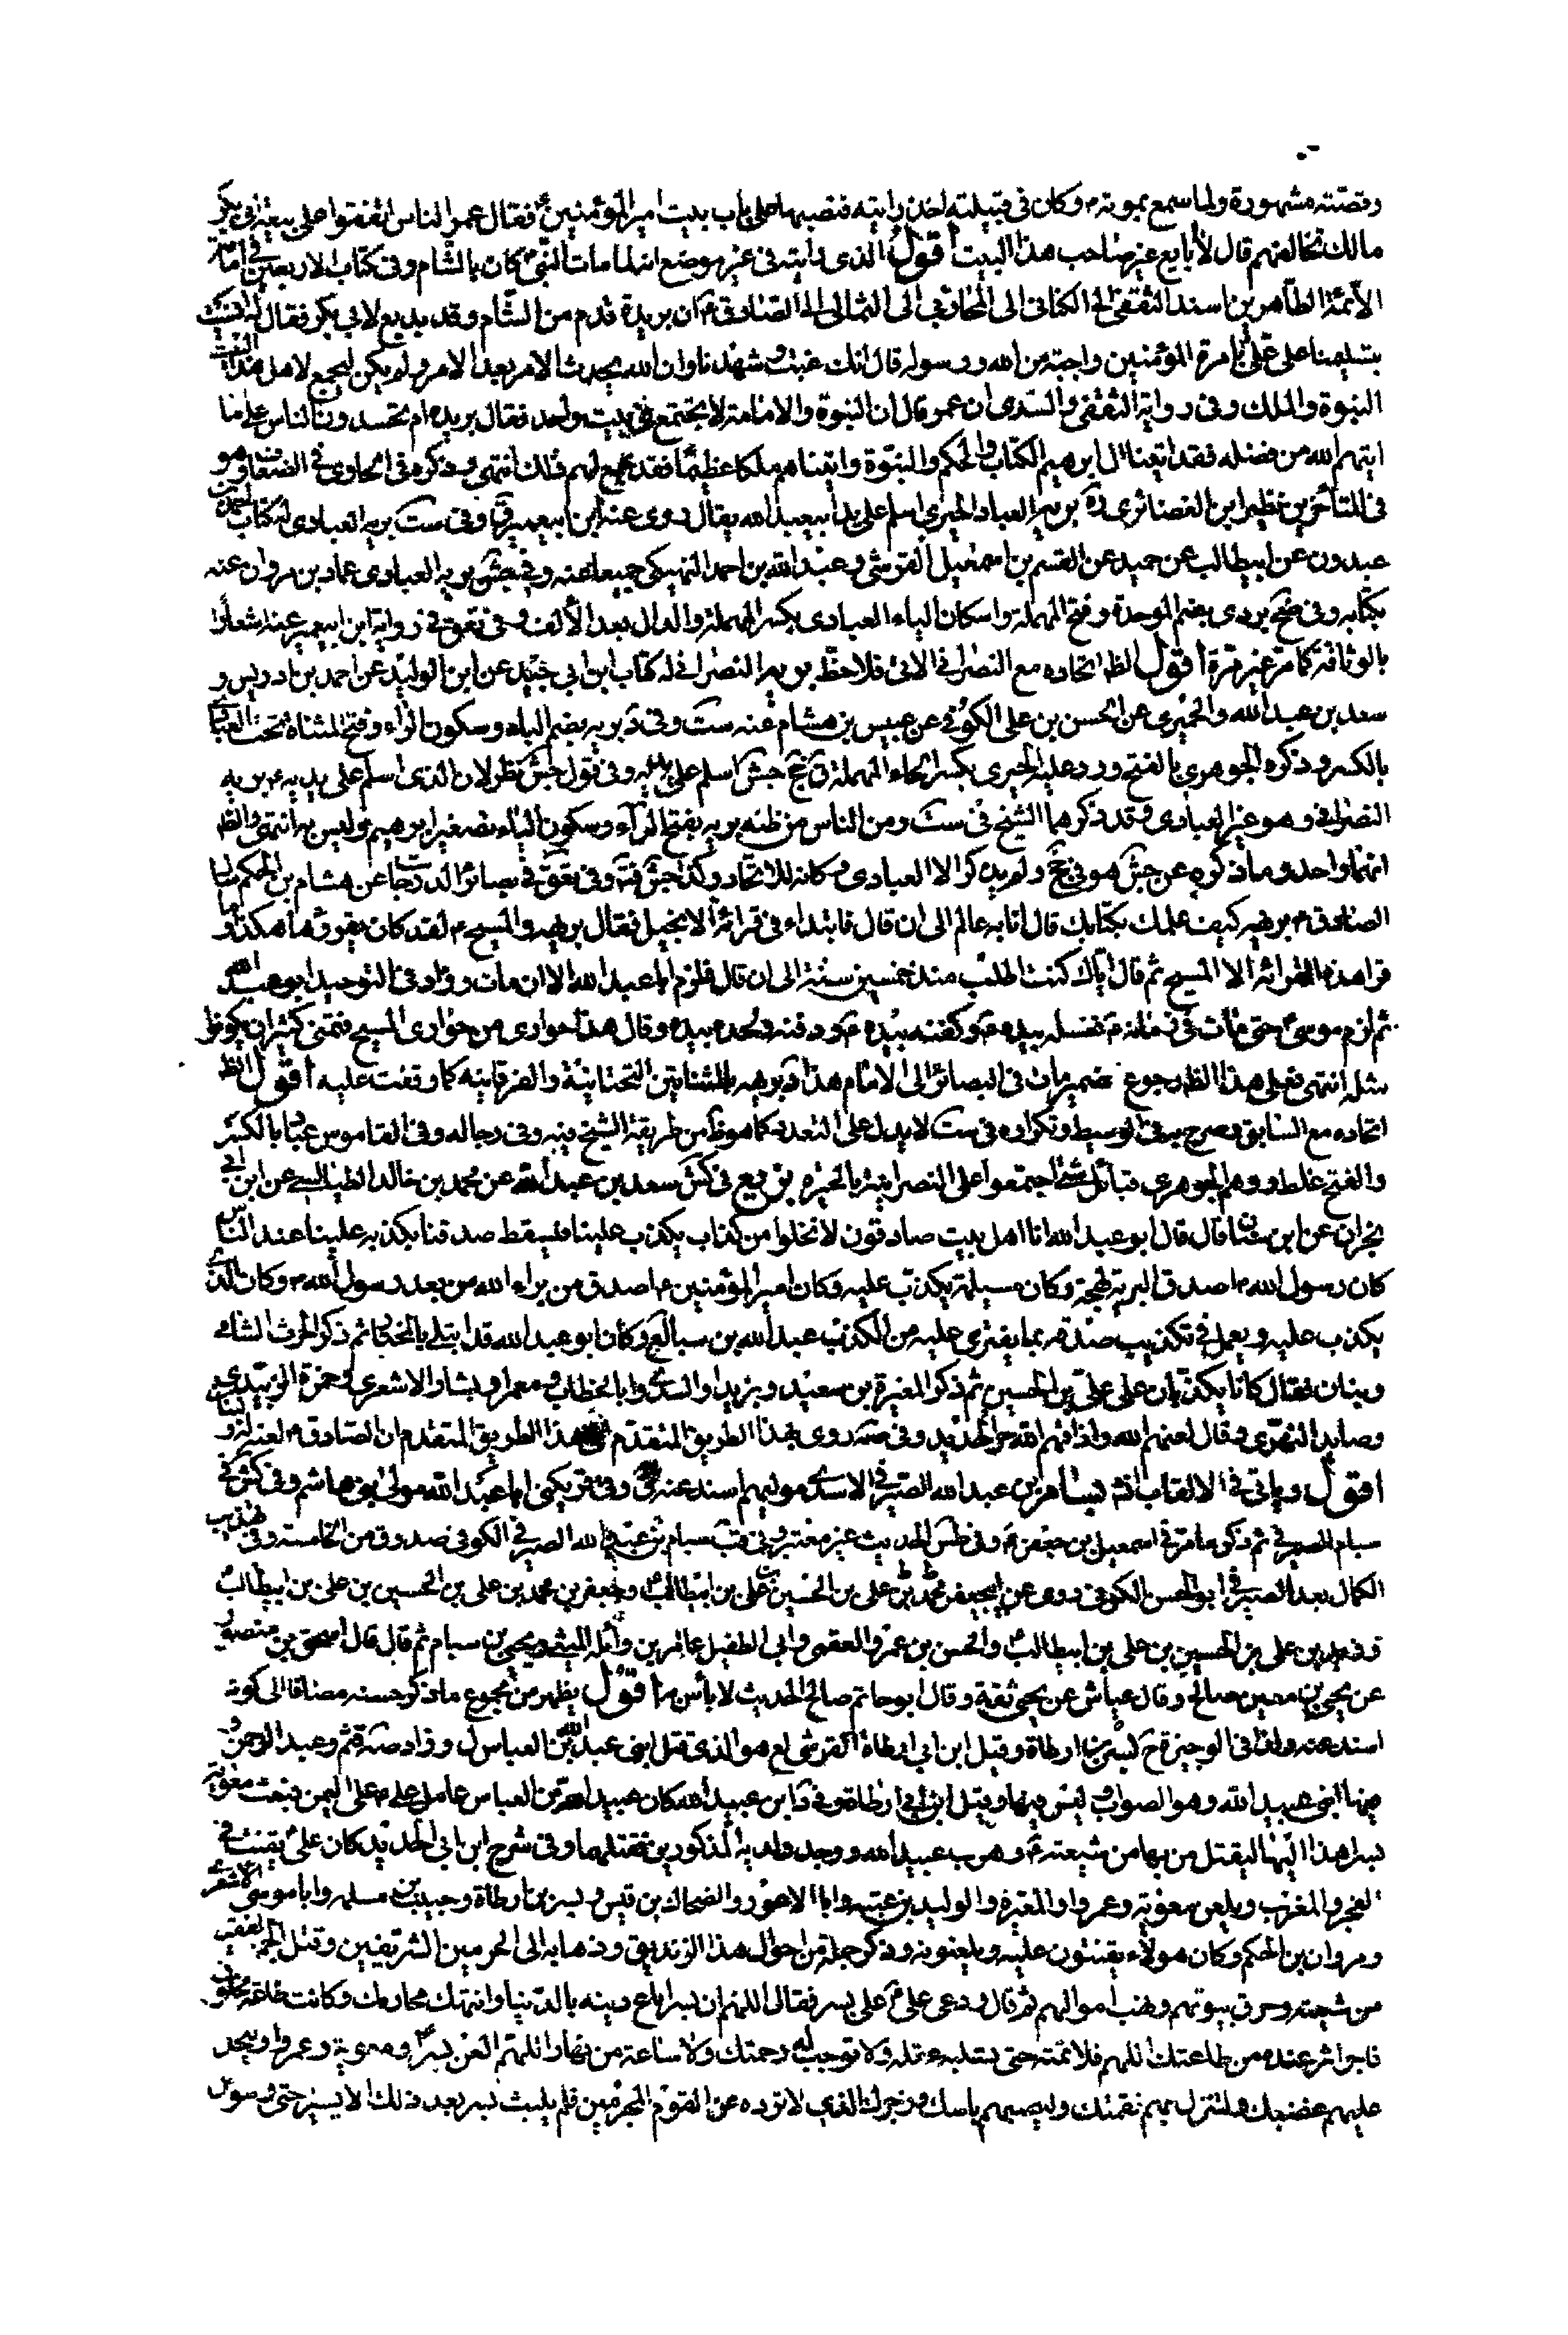 وقصته مشهورة ولما سمع بموته ص وكان فى قبيلته اخذ رايته فنصبها على باب بيت امير المؤمنين ع فقال عمر الناس اتفقوا على بيعة ابى بكر
مالك تخالفهم قال لا ابايع غير صاحب هذا البيت اقول الذى رايته فى غير موضع انه لما مات النبى ص كان بالشام وفى كتاب الاربعين فى امامة
الائمة الطاهرين اسند الثقفى الى الكنانى الى المحاربى الى الثمالى الى الصادق ع ان بريدة قدم من الشام وقد بويع لابى بكر فقال له انسيت
تسليمنا على على ع بامرة المؤمنين واجبة من الله ورسوله قال انك غبت وشهدنا وان الله يحدث الامر بعد الامر ولم يكن ليجمع لاهل هذا البيت
النبوة والملك وفى رواية الثقفى والسدى ان عمر قال ان النبوة والامامة لا يجتمع فى بيت واحد فقال بريدة ام يحسدون الناس على ما
اتيهم الله من فضله فقد اتينا ال ابرهيم الكتاب والحكم والنبوة واتيناهم ملكا عظيما فقد جمع لهم ذلك انتهى وذكره فى الحاوى فى الضعاف وهو
فى المتأخرين نظير ابن الغضائرى بريه العبادى الحيرى اسلم على يد ابيعبد الله يقال روى عنه ابن ابيعمير وفى ست بريه العبادى له كتاب احمد بن
عبدون عن ابيطالب عن حميد عن القسم بن اسمعيل القرشى وعبد الله بن احمد النهيكى جميعا عنه وفى جش بريه العبادى عماد بن مروان عنه
بكتابه وفى ضح بريه بضم الموحدة وفتح المهملة واسكان الياء العبادى بكسر المهملة والدال بعد الالف وفى تعق فى رواية ابن ابيعمير عنه اشعارا
بالوثاقة كما مر غير مرة اقول الظ اتحاده مع النصرانى الاتى فلاحظ بريه النصرانى له كتاب ابن ابى جيد عن ابن الوليد عن احمد بن ادريس و
سعد بن عبد الله والحميرى عن الحسن بن على الكوفى عن عبيس بن هشام عنه ست وفى د بريه بضم الباء وسكون الراء وفتح المثناة تحت العبادى
بالكسر وذكره الجوهرى بالفتح ورد عليه الحيرى بكسر الحاء المهملة ق جخ جش اسلم على يده وفى قول جش نظر لان الذى اسلم على يديه ع بريه
النصرانى وهو غير العبادى وقد ذكرهما الشيخ فى ست ومن الناس من ظنه بريه بفتح الراء وسكون الياء تصغير ابرهيم وليس به انتهى والظ
انهما واحد وما ذكره عن جش هو فى جخ ولم يذكر الا العبادى وكانه للاتحاد وكذا جش وفى تعق فى بصائر الدرجات عن هشام بن الحكم سال
الصادق ع بريهة كيف علمك بكتابك قال انا به عالم الى ان قال فابتداء فى قرائة الانجيل فقال بريهة والمسيح ع لقد كان يقرؤها هكذا وما
قرا هذه القرائة الا المسيح ثم قال اياك كنت اطلب منذ خمسين سنة الى ان قال فلزم ابا عبد الله الا ان مات وزاد فى التوحيد ابو عبد الله
ثم لزم موسى ع حتى مات فى زمانه ع فغسله بيده ع وكفنه بيده ع ودفنه ولحده بيده وقال هذا حوارى من حوارى المسيح فتمنى كثير ان يكونوا
مثله انتهى فعلى هذا الظ رجوع ضمير مات فى البصائر الى الامام هذا وبريهة بالمثناتين التحتانية والفوقانية كما وقفت عليه اقول الظ
اتحاده مع السابق وصرح به فى الوسيط وتكراره فى ست لا يدل على التعدد كما هو ظ من طريقة الشيخ فيه وفى رجاله وفى القاموس عباد بالكسر
والفتح غلط ووهم الجوهرى قبائل شتى اجتمعوا على النصرانية بالحيرة بزيع فى كش سعد بن عبد الله عن محمد بن خالد الطيالسى عن ابن ابى
نجران عن ابن سنان قال قال ابو عبد الله انا اهل بيت صادقون لا نخلوا من كذاب يكذب علينا فيسقط صدقنا بكذبه علينا عند الناس
كان رسول الله ص اصدق البرية لهجة وكان مسيلمة يكذب عليه وكان امير المؤمنين ع اصدق من براء الله من بعد رسول الله ص وكان الذى
يكذب عليه ويعمل فى تكذيب صدقه بما يفترى عليه من الكذب عبد الله بن سبا لع وكان ابو عبد الله قد ابتلى بالمختار ثم ذكر الحرث الشامى
وبنان فقال كانا يكذبان على على بن الحسين ثم ذكر المغيرة بن سعيد وبزيعا والسرى وابا الخطاب ومعمرا وبشار الاشعرى وحمزة اليزيدى
وصايد النهدى وقال لعنهم الله واذاقهم الله حر الحديد وفى صه روى بهذا الطريق المتقدم ان الصادق ع لعنه
اقول وياتى فى الالقاب بسام بن عبد الله الصيرفى الاسدى موليهم اسند عنه ق وفى قر يكنى ابا عبد الله مولى بنى هاشم وفى كش فى
بسام الصيرفى ثم ذكر ما مر فى اسمعيل بن جعفر ع وفى طس الحديث غير معتبر وفى قب بسام بن عبد الله الصيرفى الكوفى صدوق من الخامسة وفى تهذيب
الكمال بعد الصيرفى ابو الحسن الكوفى روى عن ابيجعفر محمد بن على بن الحسين بن على بن ابيطالب ع وجعفر بن محمد بن على بن الحسين بن على بن ابيطالب ع
وزيد بن على بن الحسين بن على بن ابيطالب ع والحسن بن عمرو الفقيمى وابى الطفيل عامر بن واثلة الليثى ويحيى بن بسام ثم قال قال اسحق بن منصور
عن يحيى بن معين صالح وقال عباس عن يحيى ثقة وقال ابو حاتم صالح الحديث لا باس به اقول يظهر من مجموع ما ذكر حسنه مضافا الى كونه
اسند عنه ولذا فى الوجيزة ح بسر بن ارطاة وقيل ابن ابى ارطاة القرشى لع هو الذى قتل ابنى عبد الله بن العباس ل وزاد صه قثم وعبد الرحمن و
فيها ابنى عبيد الله وهو الصواب وليس فيها وقيل ابن ابى ارطاة وفى د ابن عبيد الله كان عبيد الله بن العباس عامل على ع على اليمن فبعث معوية
بسرا هذا اليها ليقتل من بها من شيعته ع وهرب عبيد الله ووجد ولديه المذكورين فقتلهما وفى شرح ابن ابى الحديد كان على ع يقنت فى
الفجر والمغرب ويلعن معوية وعمروا والمغيرة والوليد بن عتبه وابا الاعور والضحاك بن قيس وبسر بن ارطاة وحبيب بن مسلمه وابا موسى الاشعرى
ومروان بن الحكم وكان هولاء يقنتون عليه ويلعنونه وذكر جملة من احوال هذا الزنديق وذهابه الى الحرمين الشريفين وقتل الجم الغفير
من شيعته وحرق بيوتهم ونهب اموالهم ثم قال ودعى على ع على بسر فقال اللهم ان بسرا باع دينه بالدنيا وانتهك محارمك وكانت طاعة مخلوق
فاجر اثر عنده من طاعتك اللهم فلا تمته حتى تسلبه عقله ولا توجب له رحمتك ولا ساعة من نهار اللهم العن بسرا ومعوية وعمروا وليحل
عليهم غضبك ولتنزل بهم نقمتك وليصيبهم باسك وزجرك الذى لا ترده عن القوم المجرمين فلم يلبث بسر بعد ذلك الا يسيرا حتى وسوس